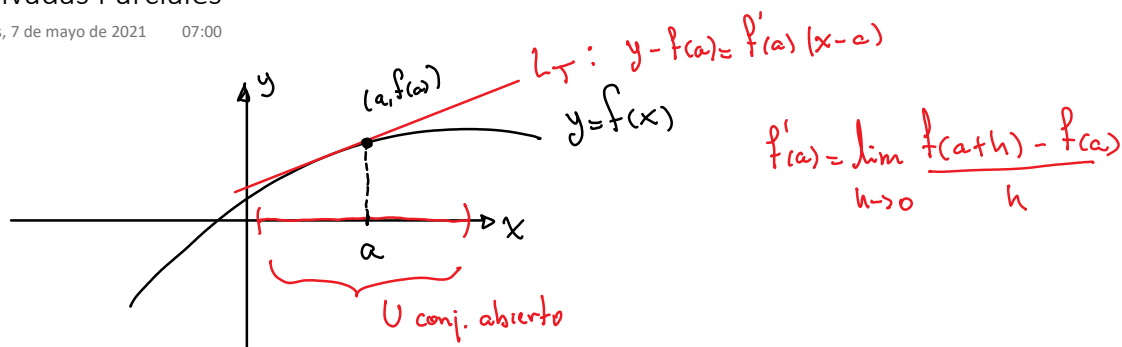 s, 7 de mayo de 2021 07:00
L_T : y - f(a) = f'(a) (x-a)
y
(a, f(a))
y = f(x)
f'(a) = lim h->0 f(a+h) - f(a) / h
x
a
U conj. abierto